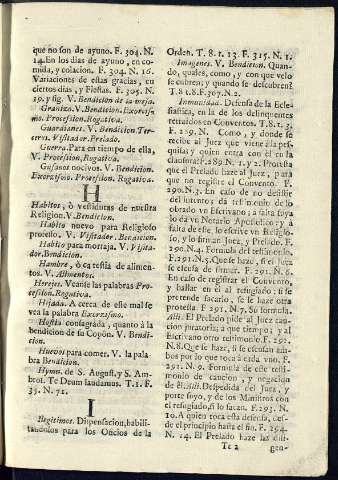 que no son de ayuno. F. 304. N.
14. En los dias de ayuno, en co-
mida, y colacion. F. 304. N. 16.
Variaciones de estas gracias, en
ciertos dias, y Fiestas. F. 305. N.
19. y sig. V. Bendicion de la mesa.
Granizo. V. Bendicion. Exorcis-
mo. Procession. Rogativa.
Guardianes. V. Bendicion. Ter-
ceros. Visitador. Prelado.
Guerra. Para en tiempo de ella,
V. Procession, Rogativa.
Gusanos nocivos. V. Bendicion.
Exorcismo. Procession. Rogativa.
H
Habitos, ò vestiduras de nuestra
Religion. V. Bendicion.
Habito nuevo para Religioso
professo. V. Visitador. Bendicion.
Habito para mortaja. V. Visita-
dor. Bendicion.
Hambre, ò carestia de alimen-
tos. V. Alimentos.
Hereges. Veanse las palabras Pro-
cession. Rogativa.
Hijada. A cerca de este mal se
vea la palabra Exorcismo.
Hostia consagrada, quanto à la
bendicion de su Copòn. V. Bendi-
cion.
Huevos para comer. V. la pala-
bra Bendicion.
Hymn. de S. August. y S. Am-
bros. Te Deum laudamus. T. 1. F.
35. N. 71.
I
Ilegitimos. Dispensacion, habili-
tandolos para los Oficios de la
Orden. T. 8. 1. 13. F. 315. N. 1.
Imagenes. V. Bendicion. Quan-
do, quales, como, y con que velo
se cubren; y quando se descubren?
T. 8. 1. 8. F. 307. N. 2.
Inmunidad. Defensa de la Ecle-
siastica, en la de los delinquentes
retraidos en Conventos. T. 8. t. 3.
F. 289. N. Como, y donde se
recibe al Juez que viene à la pes-
quisa; y quien entra con èl en la
clausura? F. 289 N. 1. y 2. Protesta
que el Prelado haze al Juez, para
que no registre el Convento. F.
290. N. 3. En caso de no desistir
del intento; dà testimonio de lo
obrado un Escrivano; à falta suya
lo dà un Notario Apostolico; y à
falta de èste, lo escrive un Religio-
so, y lo firman Juez, y Prelado. F.
290. N. 4. Formula del testimonio.
F. 291. N. 5. Que se haze, si el Juez
se escusa de firmar. F. 291. N. 6.
En caso de registrar el Convento,
y hallar en èl al refugiado; si se
pretende sacarlo, se le haze otra
protesta F. 291. N. 7. Su formula.
Alli. El Prelado pide al Juez cau-
cion juratoria; à que tiempo; y al
Escrivano otro testimonio. F. 291.
N. 8. Que se haze, si se escusan am-
bos por lo que toca à cada vno. F.
291. N. 9. Formula de este testimo-
nio de caucion, y negacion
de èl. Alli. Despedida del Juez, y
parte suyo, y de los Ministros con
el refugiado, si lo sacan. F. 293. N.
10. A quien toca esta defensa, des-
de el principio hasta el fin. F. 294.
N. 14. El Prelado haze las dili-
Tt 2
gen-